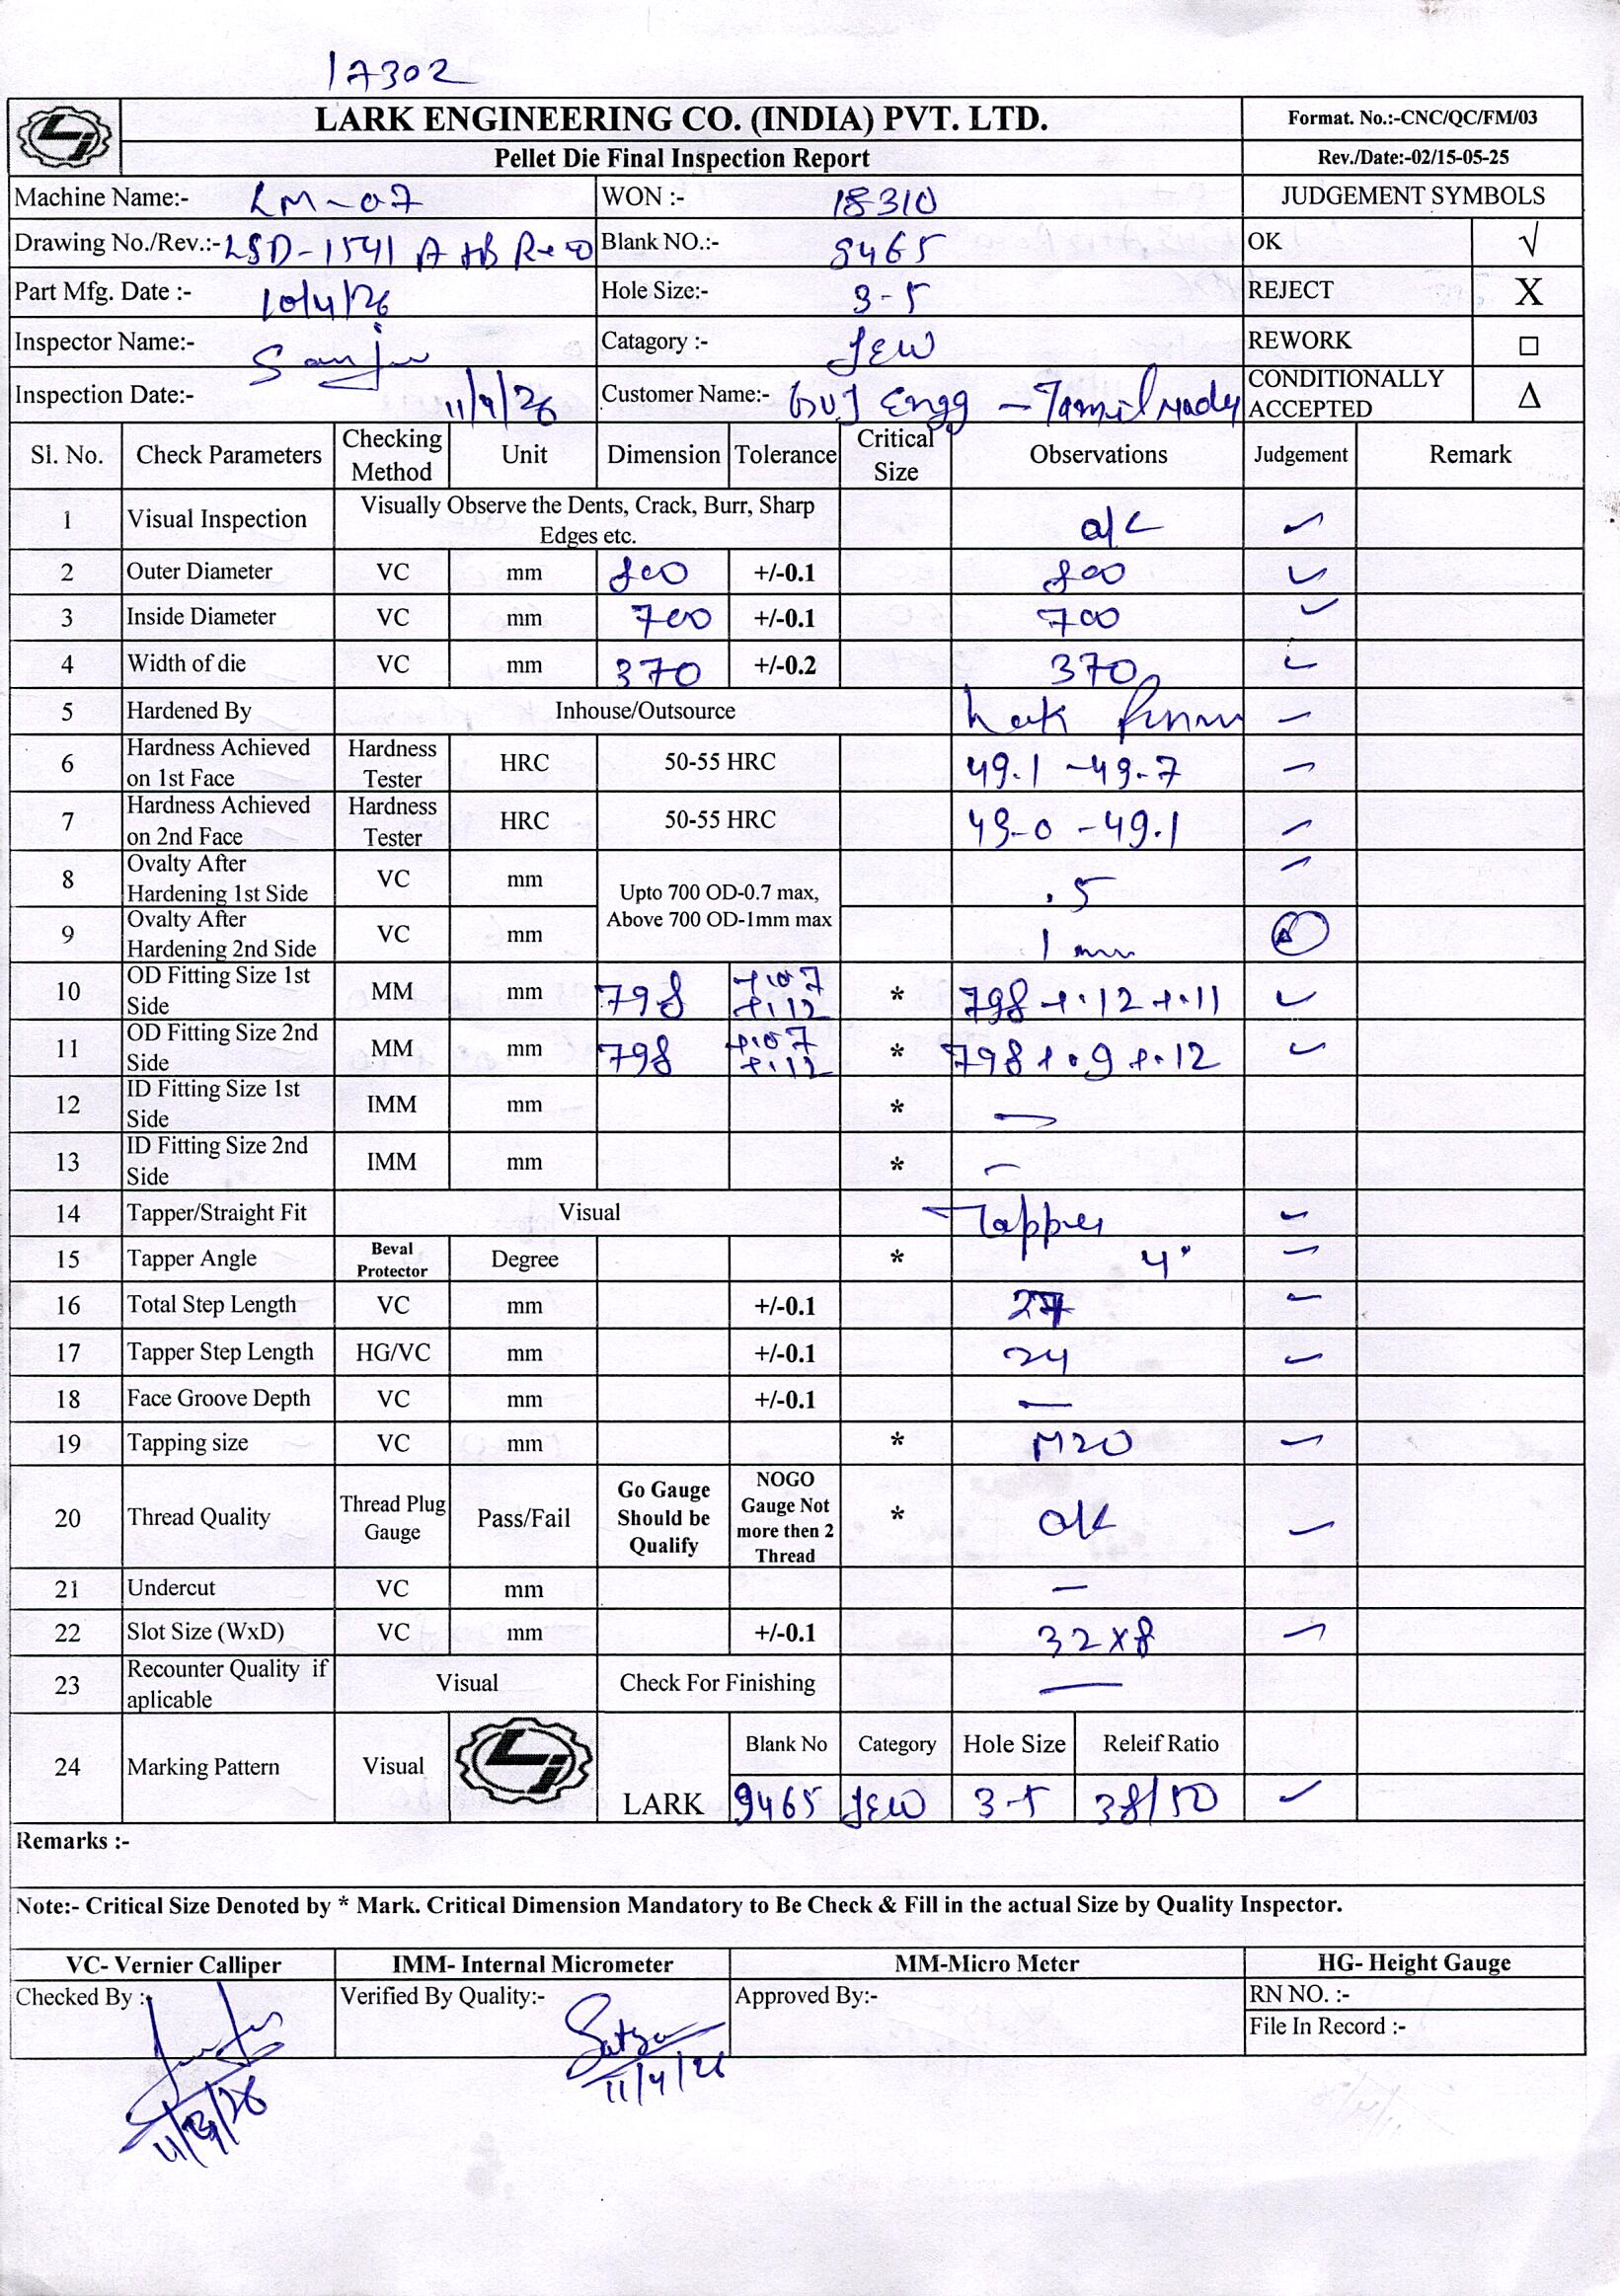 17302
LARK ENGINEERING CO. (INDIA) PVT. LTD. Format. No.:-CNC/QC/FM/03
Pellet Die Final Inspection Report Rev./Date:-02/15-05-25
Machine Name:- LM-07 WON :- 18310 JUDGEMENT SYMBOLS
Drawing No./Rev.:- LSD-1541 A Blank NO.:- 9465 OK √
Part Mfg. Date :- 10/4/26 Hole Size:- 3-5 REJECT X
Inspector Name:- Sanju Catagory :- REWORK □
Inspection Date:- 11/4/26 Customer Name:- Engg - Tamilnadu CONDITIONALLY ACCEPTED Δ
Sl. No. Check Parameters Checking Method Unit Dimension Tolerance Critical Size Observations Judgement Remark
1 Visual Inspection Visually Observe the Dents, Crack, Burr, Sharp Edges etc. o/k ✓
2 Outer Diameter VC mm 800 +/-0.1 800 ✓
3 Inside Diameter VC mm 700 +/-0.1 700 ✓
4 Width of die VC mm 370 +/-0.2 370 ✓
5 Hardened By Inhouse/Outsource ✓
6 Hardness Achieved on 1st Face Hardness Tester HRC 50-55 HRC 49.1 -49.7 ✓
7 Hardness Achieved on 2nd Face Hardness Tester HRC 50-55 HRC 49-0 -49.1 ✓
8 Ovalty After Hardening 1st Side VC mm Upto 700 OD-0.7 max, Above 700 OD-1mm max .5 ✓
9 Ovalty After Hardening 2nd Side VC mm 1 mm
10 OD Fitting Size 1st Side MM mm 798 +.07 +.12 * 798 +.12 +.11 ✓
11 OD Fitting Size 2nd Side MM mm 798 +.07 +.12 * 798 +.9 +.12 ✓
12 ID Fitting Size 1st Side IMM mm * —
13 ID Fitting Size 2nd Side IMM mm * —
14 Tapper/Straight Fit Visual Tapper ✓
15 Tapper Angle Beval Protector Degree * 4° ✓
16 Total Step Length VC mm +/-0.1 27 ✓
17 Tapper Step Length HG/VC mm +/-0.1 24 ✓
18 Face Groove Depth VC mm +/-0.1 —
19 Tapping size VC mm * M20 ✓
20 Thread Quality Thread Plug Gauge Pass/Fail Go Gauge Should be Qualify NOGO Gauge Not more then 2 Thread * o/k ✓
21 Undercut VC mm —
22 Slot Size (WxD) VC mm +/-0.1 32x8 ✓
23 Recounter Quality if aplicable Visual Check For Finishing —
24 Marking Pattern Visual LARK Blank No Category Hole Size Releif Ratio
9465 3-5 38/50 ✓
Remarks :-
Note:- Critical Size Denoted by * Mark. Critical Dimension Mandatory to Be Check & Fill in the actual Size by Quality Inspector.
VC- Vernier Calliper IMM- Internal Micrometer MM-Micro Meter HG- Height Gauge
Checked By :- Verified By Quality:- Satya Approved By:- RN NO. :-
File In Record :-
11/4/26